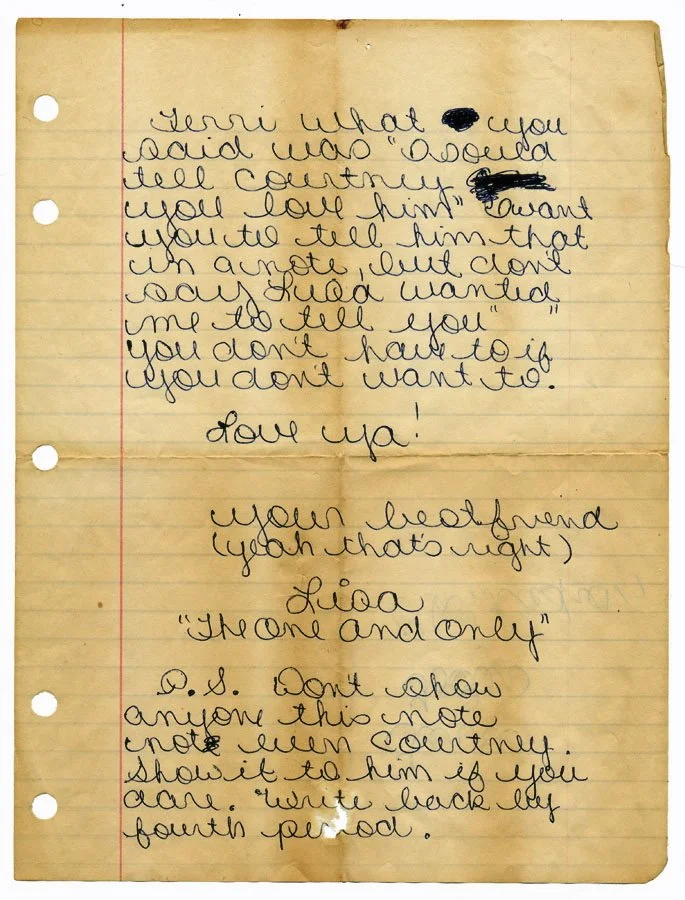 Terri what you
said was "I sould
tell Courtney
you love him" I want
you to tell him that
in a note, but don't
say Lisa wanted
me to tell you" "
you don't have to if
you don't want to.
Love ya!
your best friend
(yeah that's right)
Lisa
"The One and Only"
P.S. Don't show
anyone this note
not even Courtney.
Show it to him if you
dare. Write back by
fourth period.